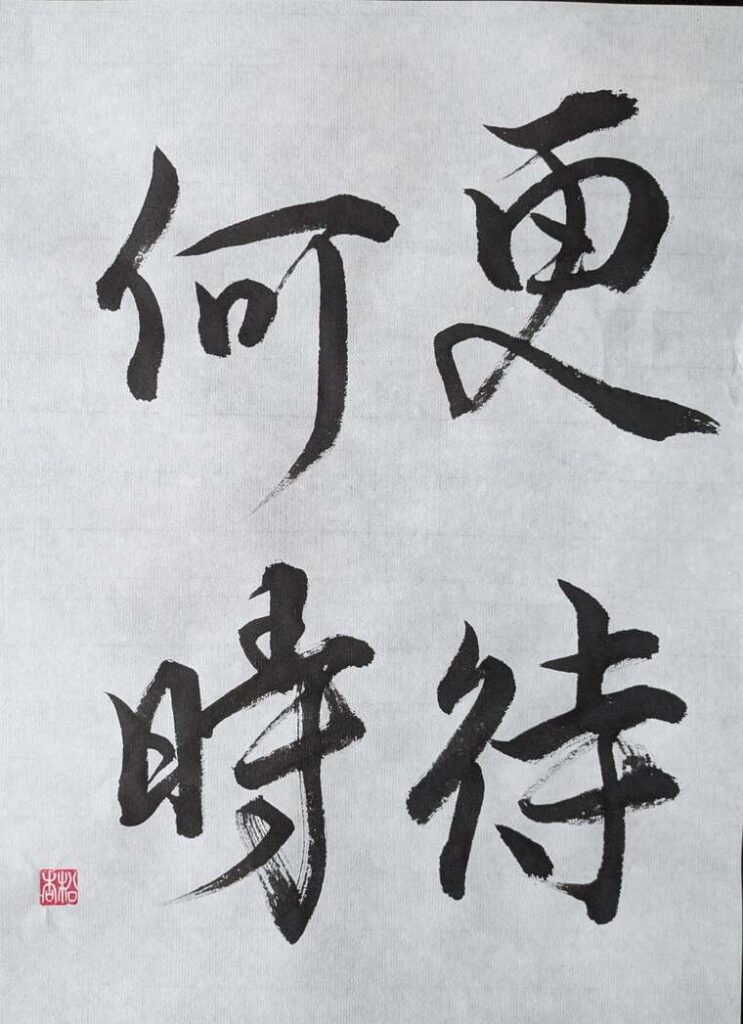 更待
何時